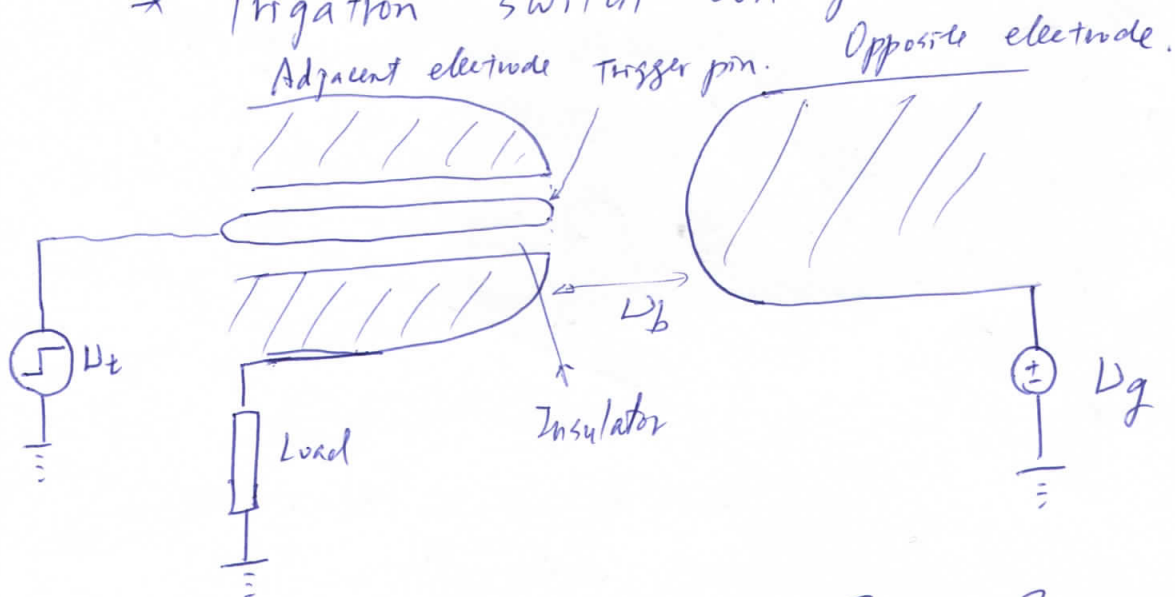 * Trigatron switch
Adjacent electrode Trigger pin. Opposite electrode.
V_b
V_t
V_g
Insulator
Load